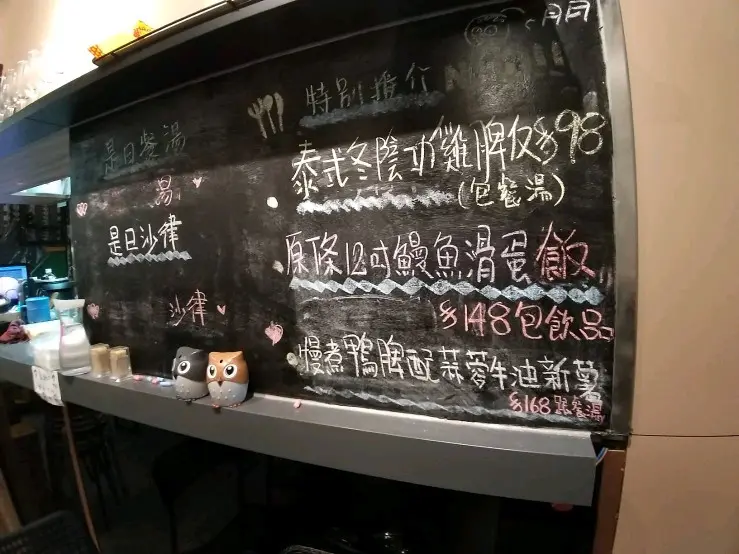 是日餐湯
湯
是日沙律
沙律
特別推介
泰式冬陰功雞脾伩$98
(包餐湯)
原條12吋鰻魚滑蛋飯
$148包飲品
慢煮鴨脾配蒜蓉牛油新薯
$168跟餐湯